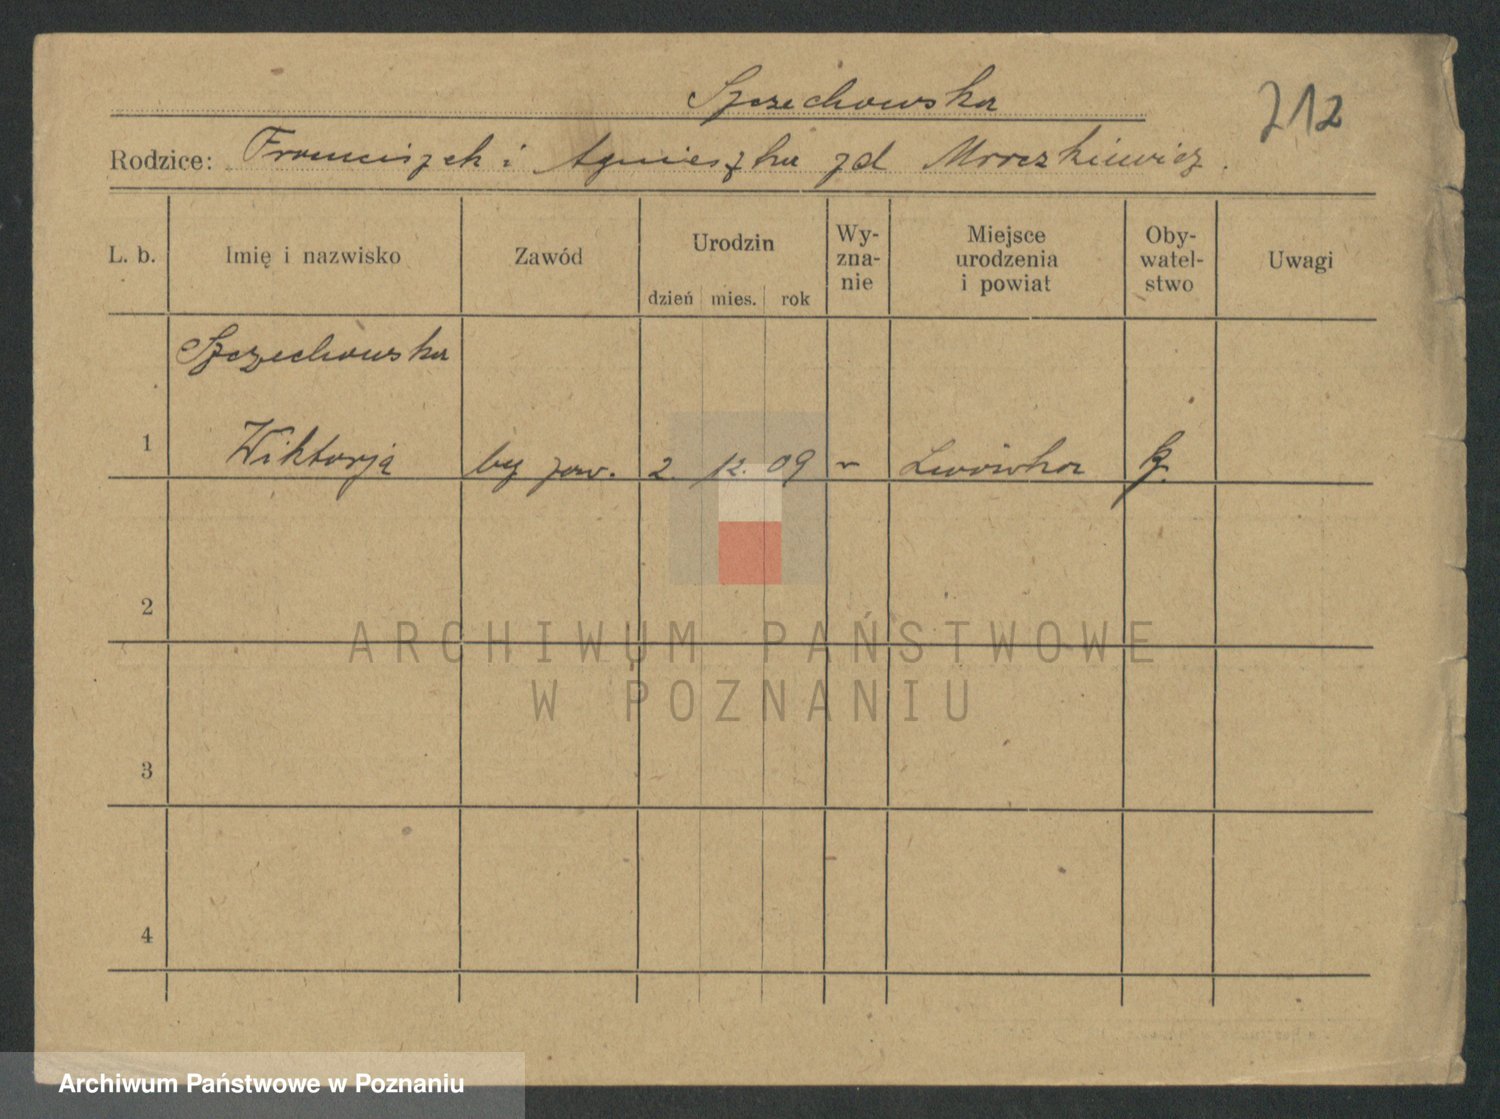 Szczechowska
212
Rodzice: Franciszek i Agnieszka zd Mroczkiewicz.
L. b. Imię i nazwisko Zawód Urodzin dzień mies. rok Wy-zna-nie Miejsce urodzenia i powiat Oby-watel-stwo Uwagi
Szczechowska
1 Wiktorja bez zaw. 2. 12. 09 Lwówka
2
ARCHIWUM PAŃSTWOWE
W POZNANIU
3
4
Archiwum Państwowe w Poznaniu